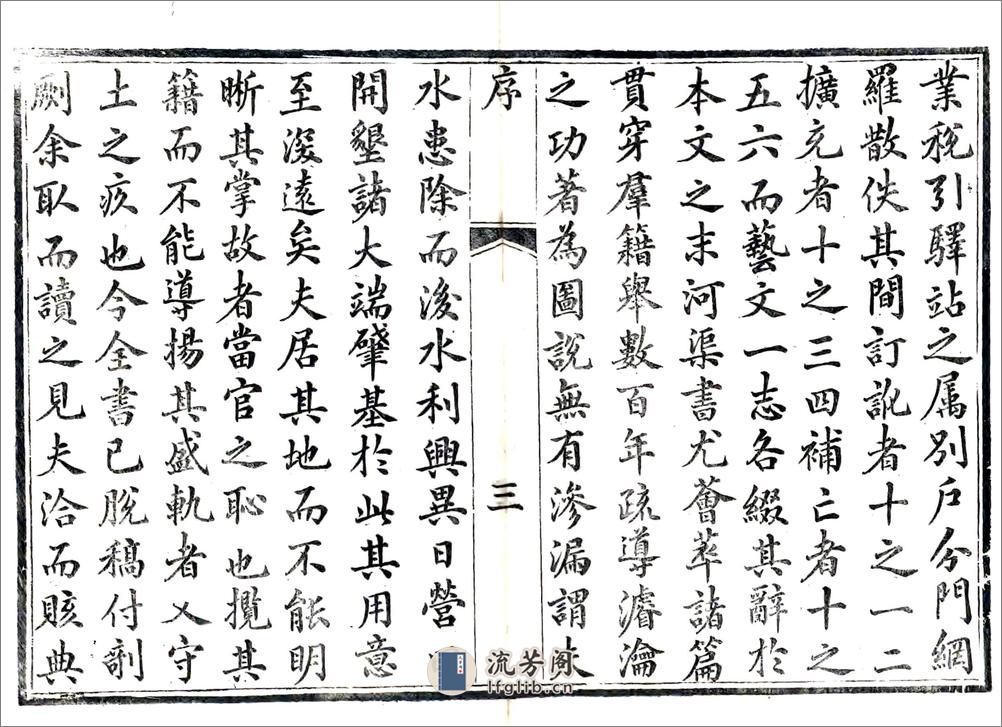 業稅引驛站之属别戶分門網
羅散佚其間訂訛者十之一二
擴充者十之三四補亡者十之
五六而藝文一志各綴其辭於
本文之末河渠書尤薈萃諸篇
貫穿羣籍舉數百年疏導濬瀹
之功著為圖說無有滲漏謂
序
三
水患除而後水利興異日營
開墾諸大端肇基於此其用意
至深遠矣夫居其地而不能明
晰其掌故者當官之恥也攬其
籍而不能導揚其盛軌者乂守
土之疚也今全書已脫稿付剞
劂余取而讀之見夫洽而賅典
流芳阁
lfglib.cn